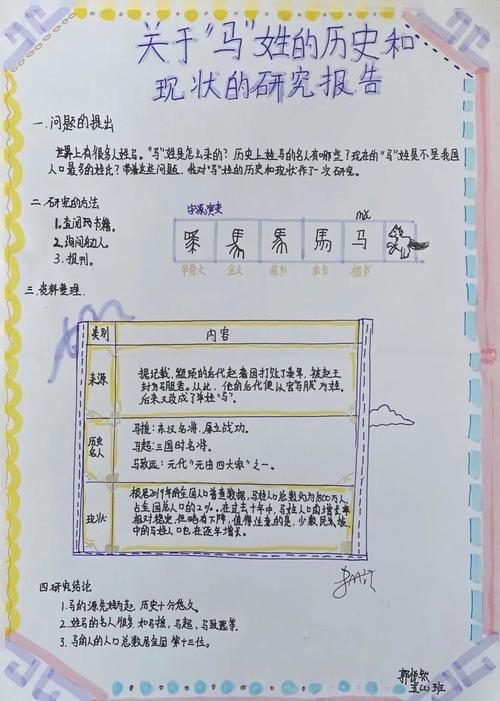 关于“马”姓的历史和
现状的研究报告
一.问题的提出
世界上有很多人姓马。“马”姓是怎么来的?历史上姓马的名人有哪些?现在的“马”姓是不是我国
人口最多的姓氏?带着这些问题,我对“马”姓的历史和现状作了一次研究。
二.研究的方法
1.查阅图书馆。
2.询问身边人。
3.报刊。
字源演变
马
甲骨文 金文 篆书 隶书 楷书
三.资料整理
类别 内容
来源
据记载,颛顼的后代赵奢因打败了秦军,被赵王
封为马服君。从此,他的后代便以官“马服”为姓,
后来又改成了单姓“马”。
历史名人
马援:东汉名将,屡立战功。
马超:三国时名将。
马致远:元代“元曲四大家”之一。
现状
根居2019年的全国人口普查数据,马姓人口总数约为1800万人,
占全国总人口的2%。在过去十年中,马姓人口的增长率
相对稳定,但略有下降,值得注意的是,少数民族
中的马姓人口也在逐年增长。
四.研究结论
1.马的源
历史十分悠久。
2.姓马的名人
马援,马超,马致远等。
3.马的人的人口总数居全国第十三位。
五(2)班